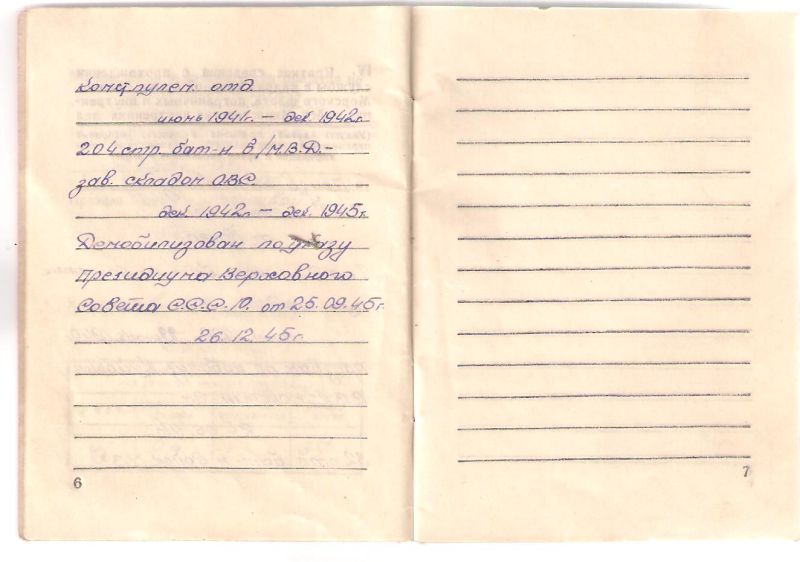 Конт пулем. отд.
июнь 1941г. – дек. 1942г.
204 стр. бат-н в/М.В.Д.–
зав. складом ОВС.
дек. 1942г. – дек. 1945г.
Демобилизован по указу
Президиума Верховного
Совета С.С.С.Р. от 25.09.45г.
26.12.45г.
6
7